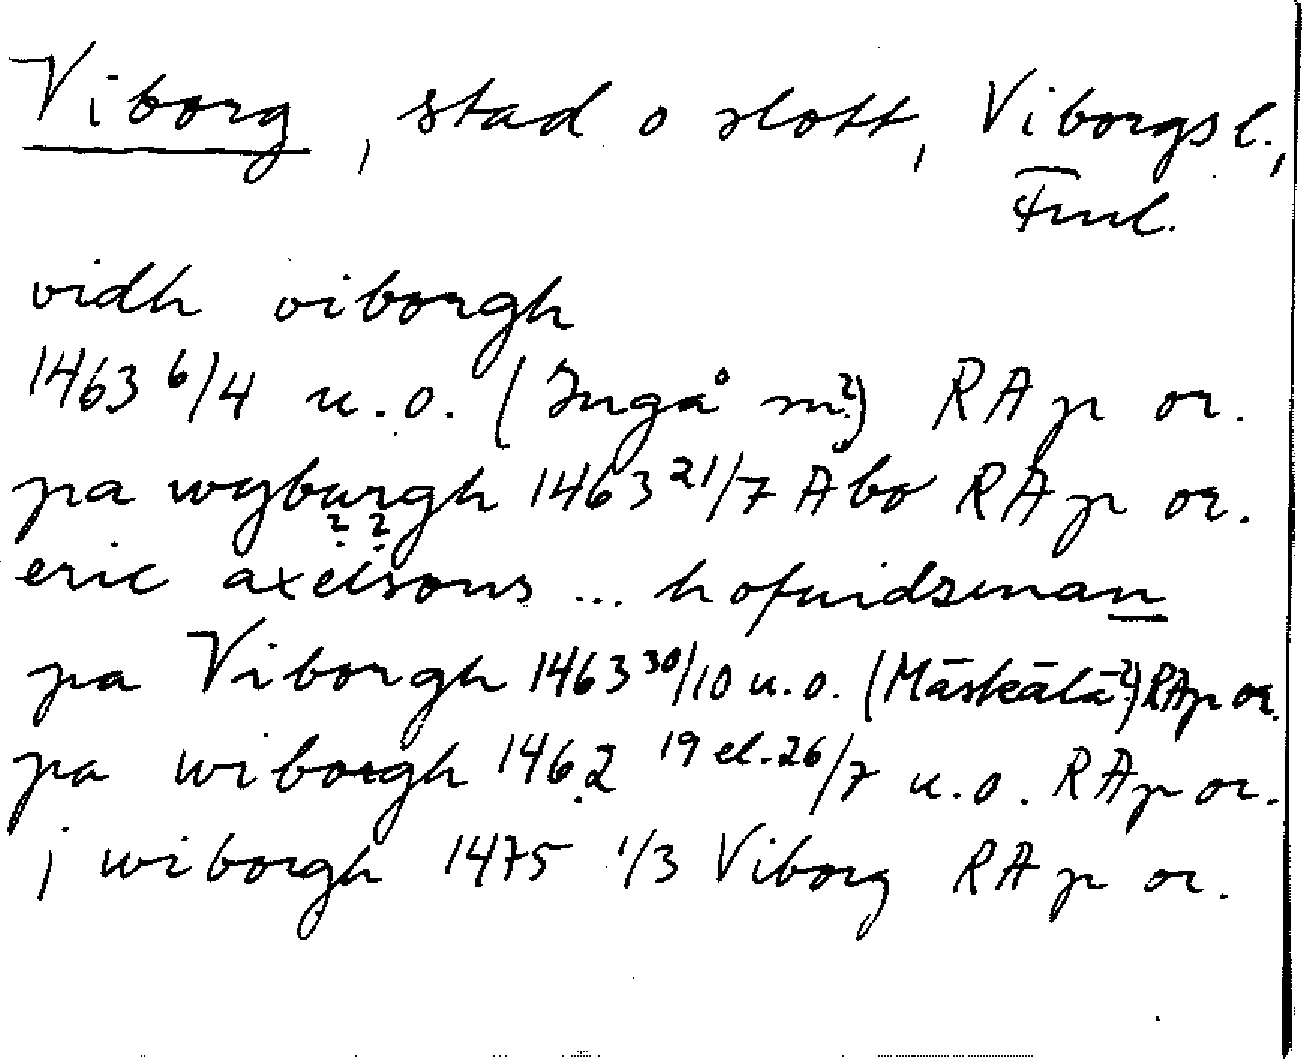 Viborg, stad o slott, Viborgs l.,
Finl.
vidh viborgh
1463 6/4 u.o. (Ingå m?) RAp or.
pa wyburgh 1463 21/7 Abo RAp or.
? ?
eric axelsons ... hofuidzman
pa Viborgh 1463 30/10 u.o. (Mäskälä?) RAp or.
pa wiborgh 1462 19 el. 26/7 u.o. RAp or.
j wiborgh 1475 1/3 Viborg RAp or.